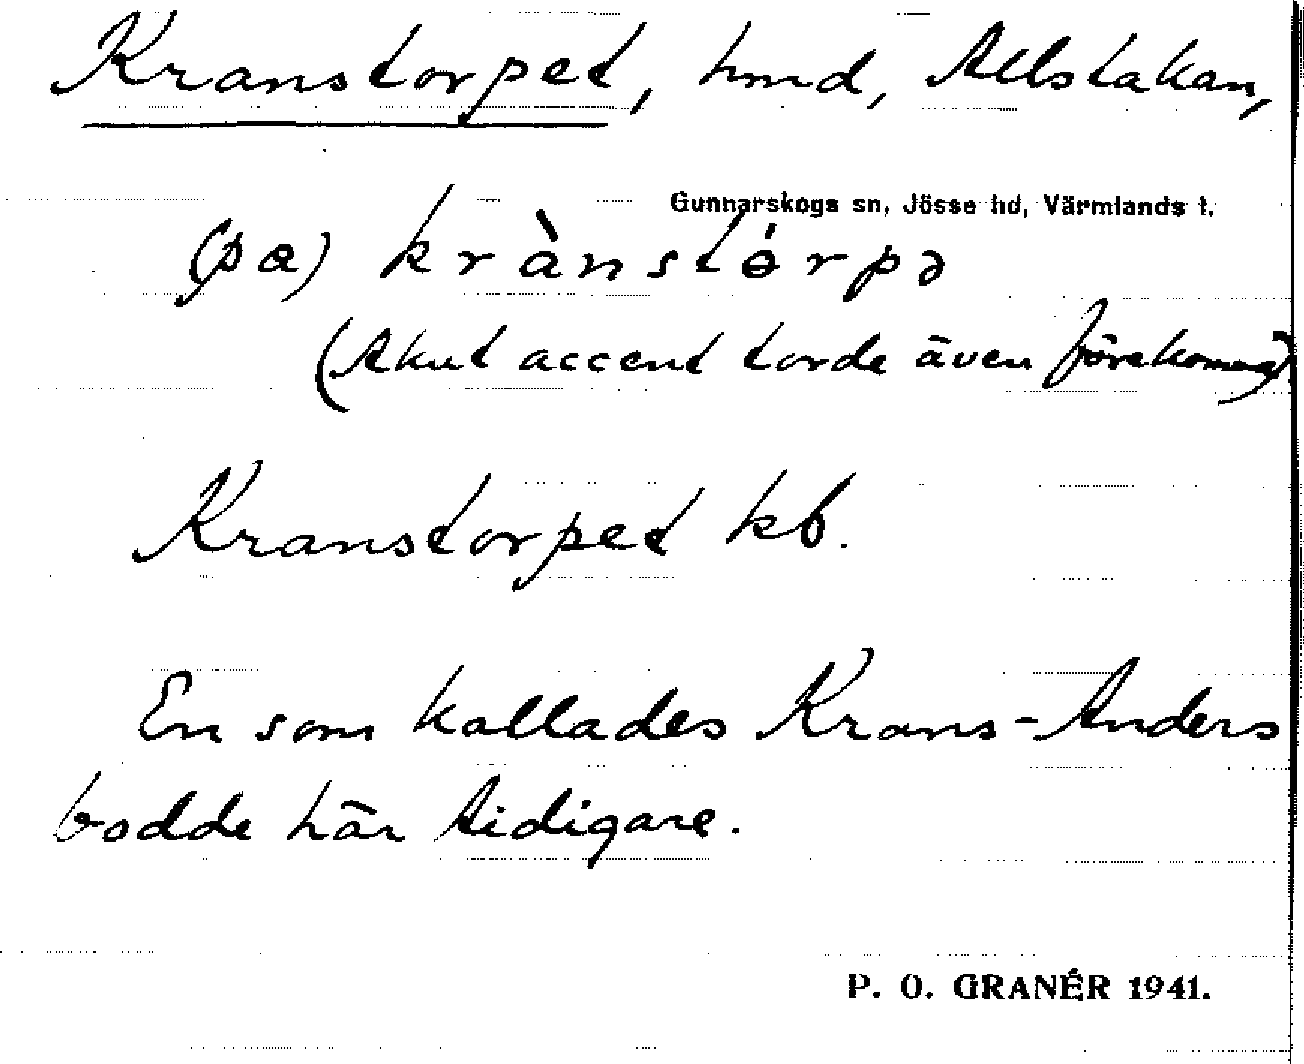 Kranstorpet, hmd, Allstakan,
Gunnarskogs sn, Jösse hd, Värmlands l.
(pa) krànstórpə
(Akut accent torde även förekomma)
Kranstorpet kb.
En som kallades Krans-Anders
bodde här tidigare.
P. O. GRANÉR 1941.